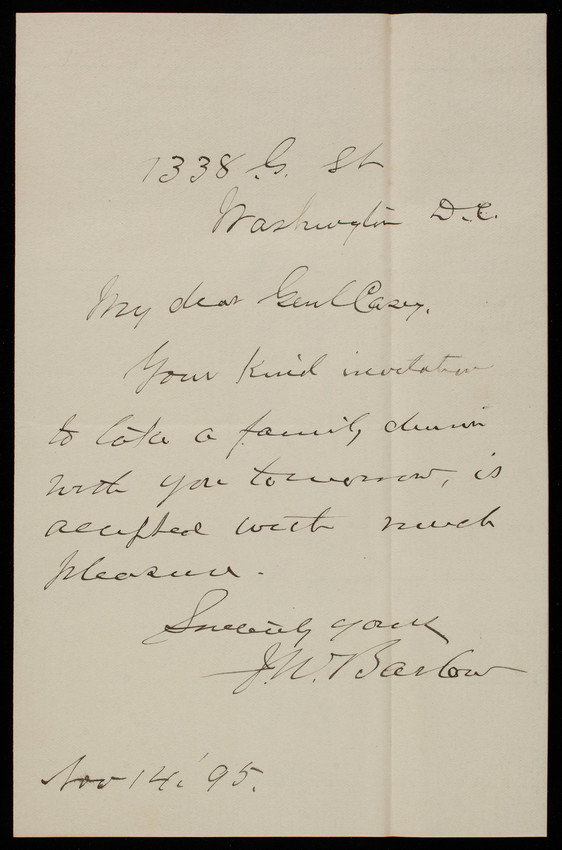 1338 G. St
Washington D.C.
My dear Genl Casey,
Your kind invitation
to take a family dinner
with you tomorrow, is
accepted with much
pleasure.
Sincerely yours
J.W. Barlow
Nov 14, '95.